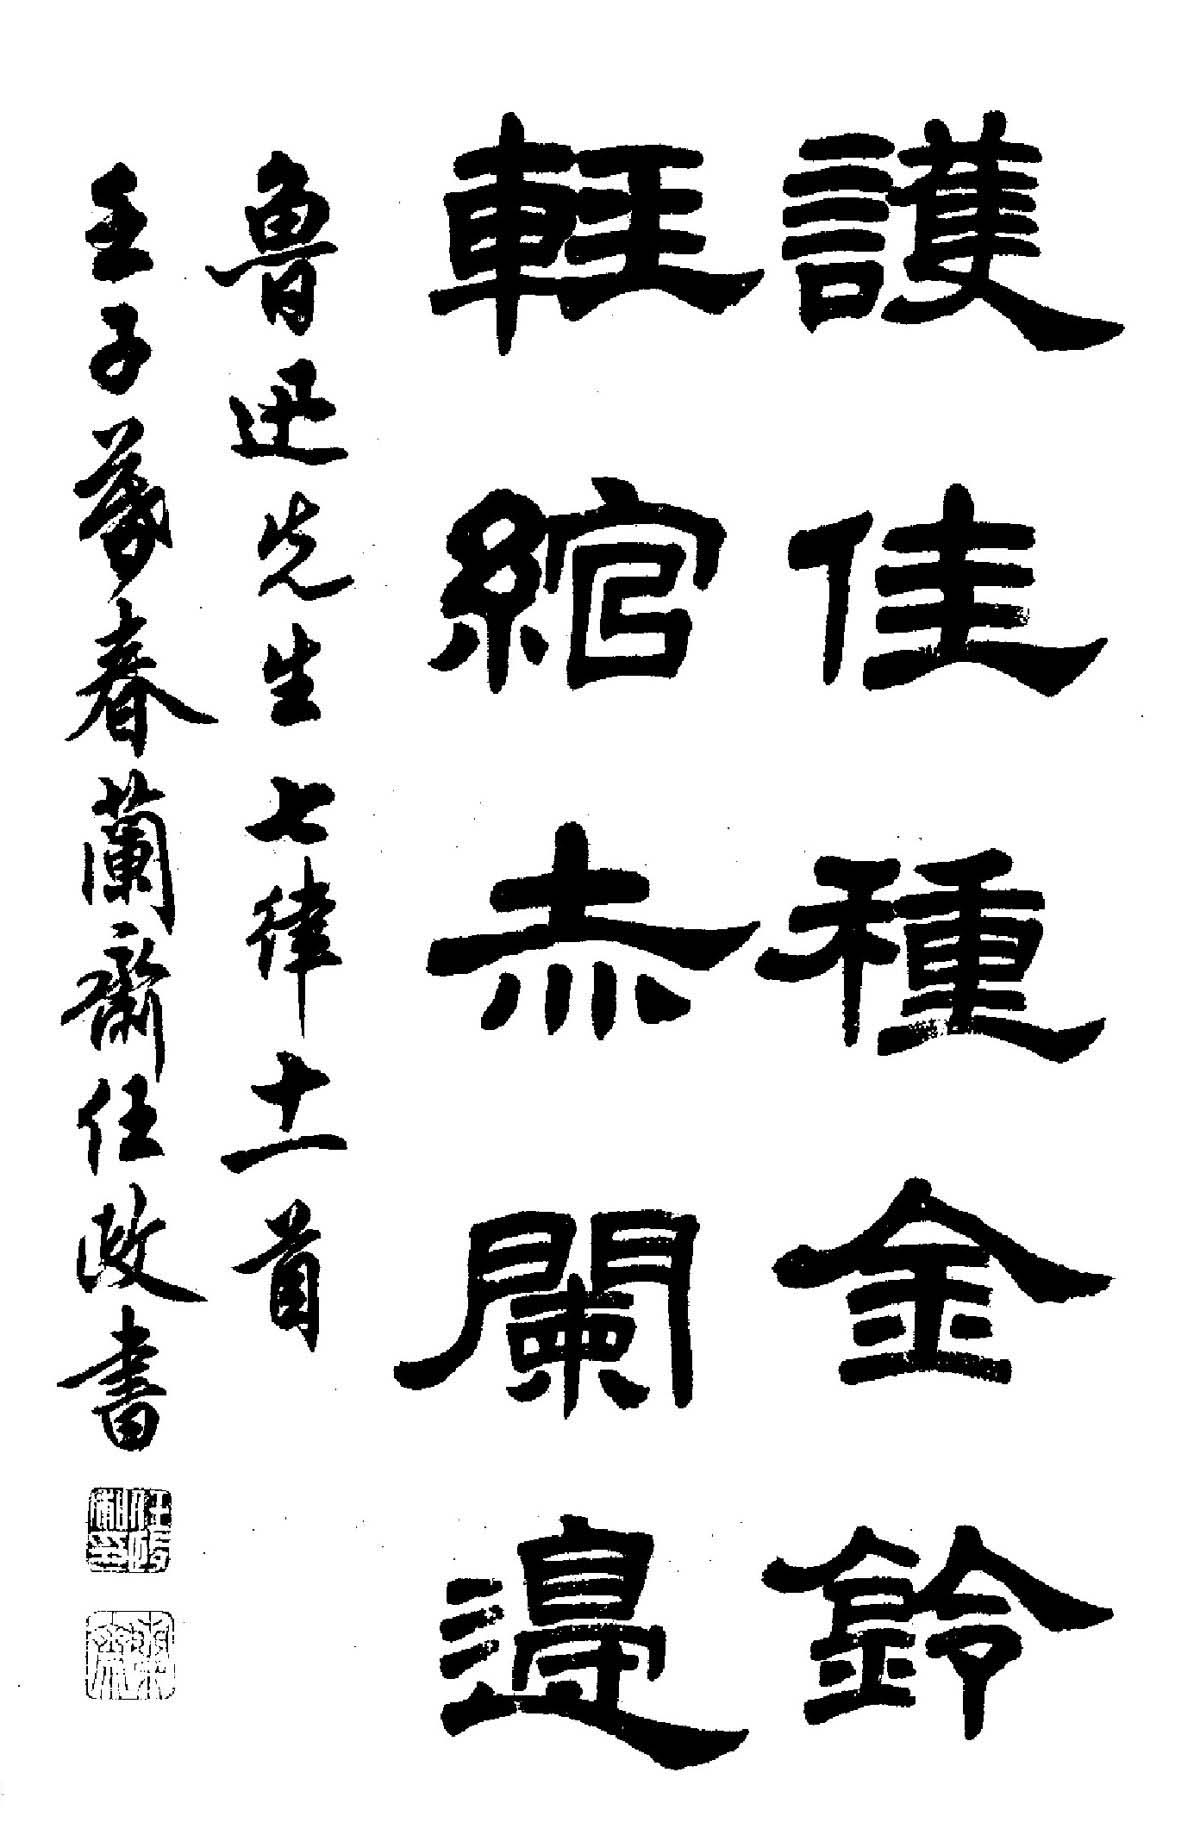 護佳種金鈴
輕綰赤闌邊
魯迅先生七律十一首
壬子暮春蘭齋任政書